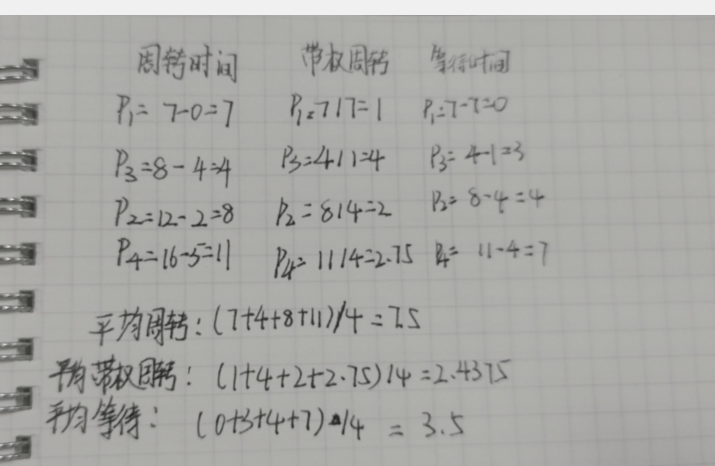 周转时间 带权周转 等待时间
P₁= 7-0=7 P₁=7/7=1 P₁=7-7=0
P₃=8-4=4 P₃=4/1=4 P₃=4-1=3
P₂=12-2=8 P₂=8/4=2 P₂=8-4=4
P₄=16-5=11 P₄=11/4=2.75 P₄=11-4=7
平均周转:(7+4+8+11)/4=7.5
平均带权周转:(1+4+2+2.75)/4=2.4375
平均等待:(0+3+4+7)/4=3.5